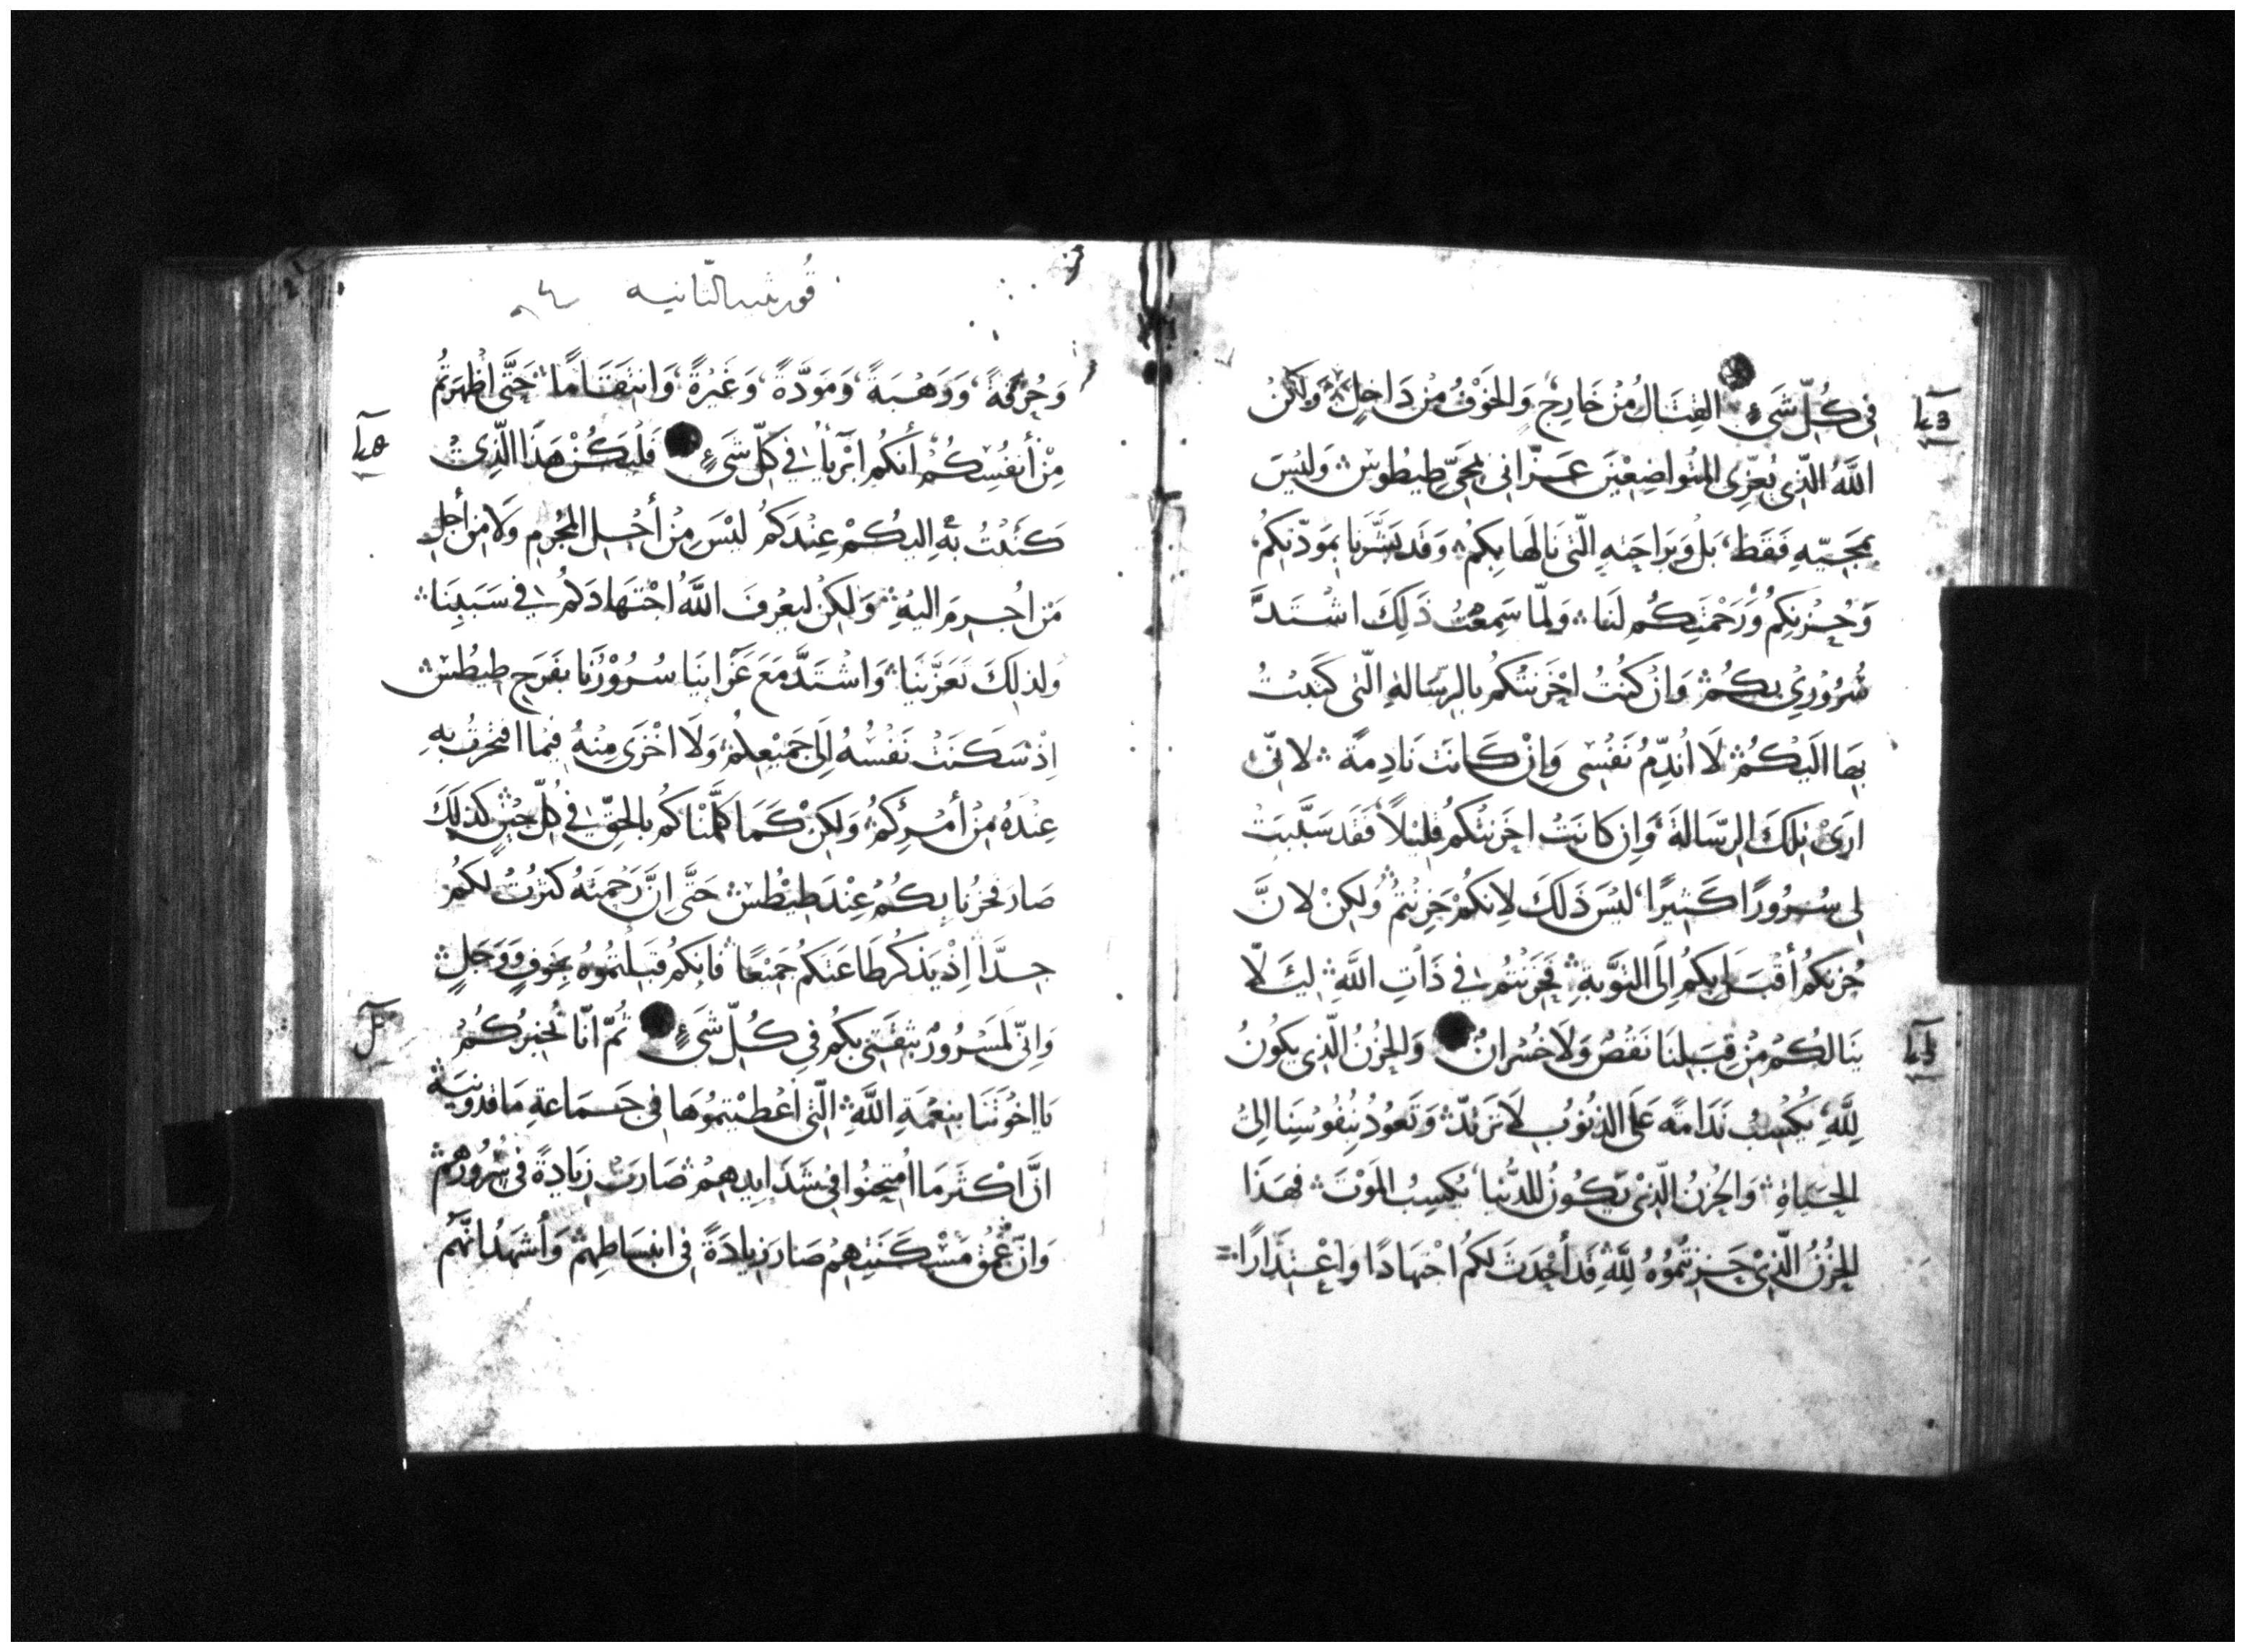 فِى كُلِّ شَىءٍ القِتَالُ مِنْ خَارِجٍ وَالخَوْفُ مِنْ دَاخِلٍ وَلَكِنْ
اللَّهُ الَّذِى يُعَزِّى المُتَواضِعِيْنَ عَزَّانِى بِمَجِىِّ طِيطُوسَ وَلَيْسَ
بِمَجِيّهِ فَقَط بَلْ وَبِرَاحَتِهِ الَّتى نَالَهَا بِكُمْ وَقَد بَشَّرَنَا بِمَوَدَّتِكُمْ
وَحُزْنِكُمْ وَرَحْمَتِكُم لَنَا وَلَمَّا سَمِعْتُ ذَلِكَ اشْتَدَّ
سُرُوْرِي بِكُمْ وَانْ كُنْتُ احْزَنْتُكُم بِالرِسَالَةِ الَّتى كَتَبْتُ
بِهَا الَيْكُمْ لَا اُنَدِّمُ نَفْسِى وَاِنْ كَانَت نَادِمَةً لانّى
ارَىْ تِلكَ الرِّسَالَةَ وَاِن كَانَتْ احْزَنَتْكُمْ قَلِيْلاً فَقَد سَبَّبَتْ
لِى سُرُورًا كَثِيرًا لَيْسَ ذَلكَ لِاَنكُمْ حَزِنْتُمْ وَلَكِنْ لانَّ
حُزنكُم أقْبَلَ بِكُم اِلَى التَوْبَةِ فَحَزِنْتُم فِي ذَاتِ اللَّهِ لِيَلَّا
يَنَالكُمْ مِنْ قِبَلِنَا نَقْصٌ وَلَا خُسْرانٌ وَالحُزنُ الَّذِى يَكُونُ
لِلَّهِ يُكْسِبُ نَدَامَةً عَلَى الذنُوْبِ لَا تَرْتَدّ وَتَعُودُ بِنُفُوسِنَا اِلَىْ
الحَيَاةِ وَالحُزنُ الَّذِىْ يَكُونُ لِلدُّنْيَا يُكسِبُ المَوْتَ فهَذَا
الحُزْنُ الَّذِىْ حَزِنتُمُوْهُ لِلَّهِ قَد أحْدَثَ لَكُم اجْتِهَادًا وَاعْتِذَارًا
قُورنثيه الثانيه
وَحُرْقَةً وَرَهْبَةً وَمَوَدَّةً وَغَيْرَةً وَانتِقَامًا حَتَّى اظْهَرْتُم
مِنْ أنفُسِكُمْ أنكُم ابْرِيَأ فِى كُلِّ شَىءٍ فَلْيَكُنْ هَذَا الَّذِىْ
كَتَبْتُ بِهِ اليكُمْ عِنْدَكُمْ لَيْسَ مِنْ أجْلِ المُجْرِمِ وَلَا مِن أجلِ
مَن اُجْرِمَ اليْهِ وَلَكِنْ لِيَعْرِفَ اللَّهُ اجْتِهَادَكُم فِى سَبَبِنَا
وَلذلِكَ تَعَزَّيْنَا وَاشْتَدَّ مَعَ عَزَايِنَا سُرُوْرُنَا بفَرَحِ طِيطُسْ
اِذْ سَكَنَتْ نَفْسُهُ اِلَى جَمِيْعِكُمْ وَلَا اخْزَى مِنْهُ فِيمَا افتخرتُ بِهِ
عِنْدَهُ مِنْ أمْرِكُمْ وَلَكِنْ كَمَا كَلَّمْنَاكُم بالحَقِّ فِى كُلِّ حِيْنٍ كَذلِكَ
صَارَ فخرُنَا بِكُمْ عِنْدَ طِيْطُسْ حَتَّى اِنَّ رَحْمَتَهُ كَثُرَتْ لَكُمْ
جِدًّا اِذْ يَذكُر طَاعَتَكُم جَمِيْعًا فَاِنكُم قَبِلْتُمُوهُ بِخَوفٍ وَوَجَلٍ
وَاِنِّى لَمَسْرُورٌ بِثِقَتِى بِكُم فِى كُلِّ شَىءٍ ثُمَّ انَّا نُخبِرُكُمْ
يَا اخْوَتَنَا بِنِعْمَةِ اللَّهِ الَّتِى أُعْطِيْتمُوهَا فِى جَمَاعَةِ مَاقدُونِيَة
انَّ اكْثَر مَا امتُحِنُوا فِى شَدَايِدِهِمْ صَارَتْ زِيَادَةً فِى سُرُورِهِمْ
وَانّ عُمْقَ مَسْكَنَتِهِمْ صَارَ زِيَادَةً فِى انبِسَاطِهِمْ وَأشْهَدُ انَّهُم